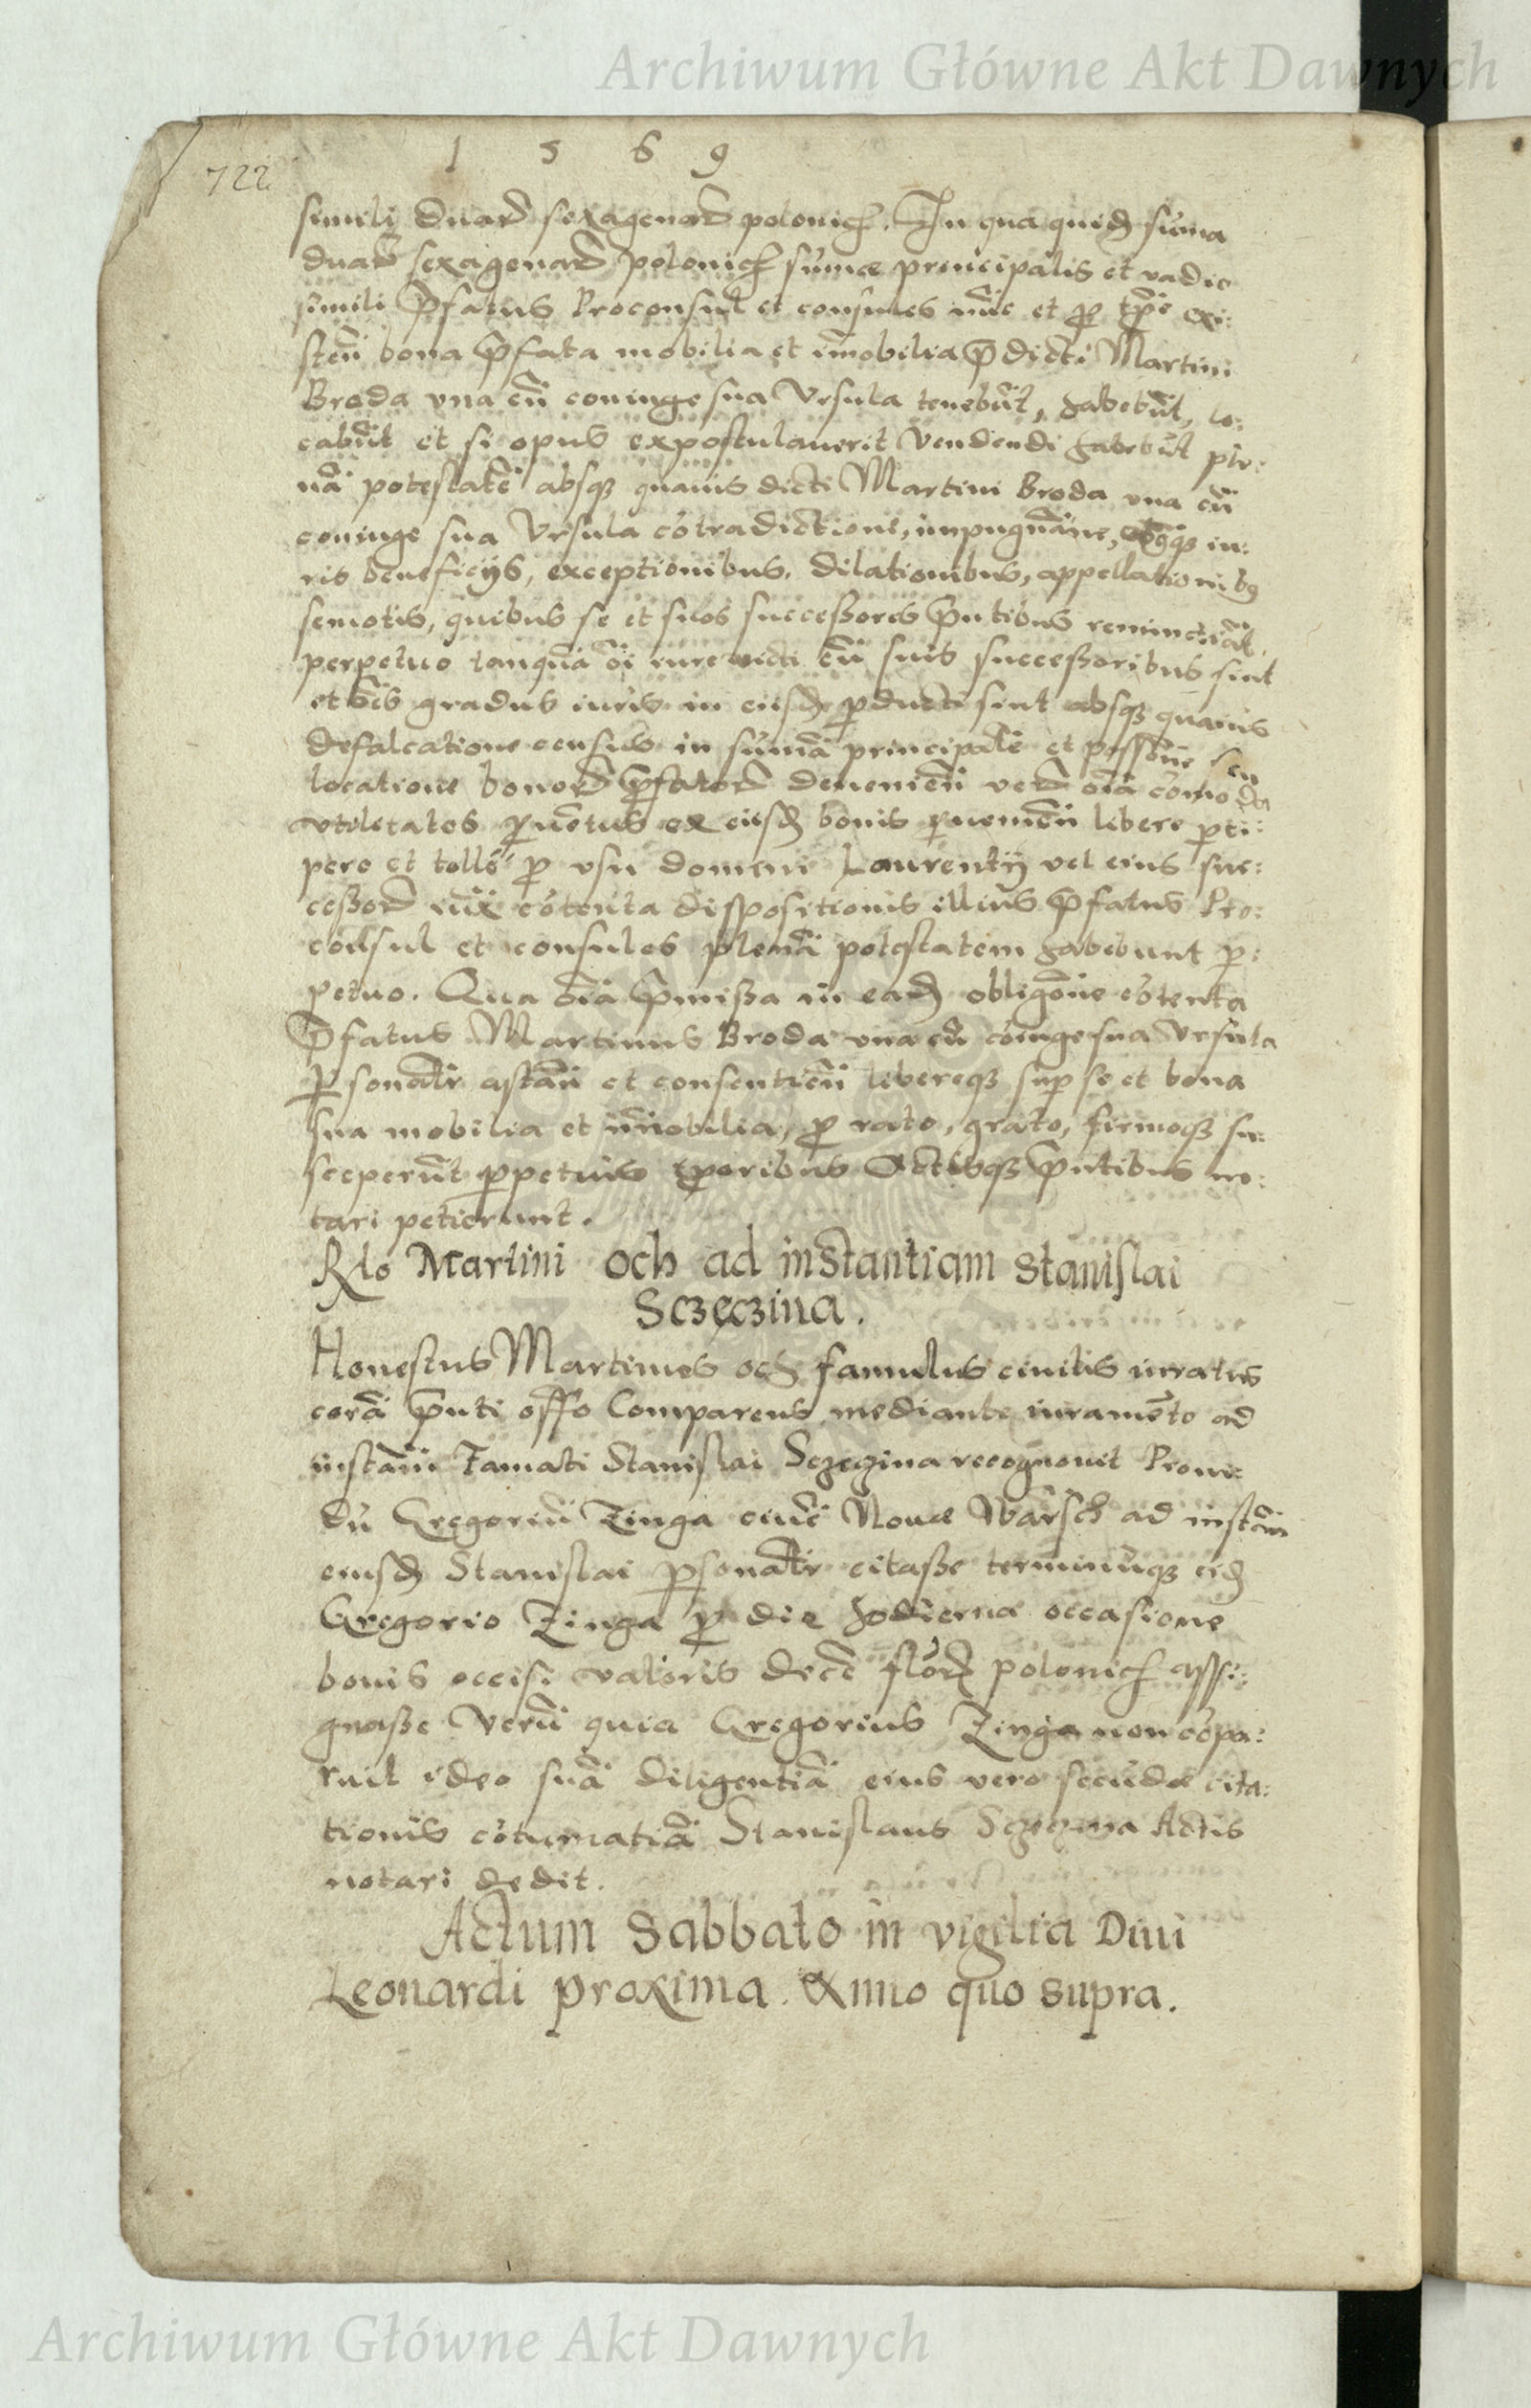 Archiwum Główne Akt Dawnych
722
1 5 6 9
simili duarũ sexagenarũ polonich. In qua quidẽ sũma
duarũ sexagenarũ polonich sumæ principalis et vadio
simili p̃fatus Proconsul et consules nũc et p̱ tp̃e exi:
steñ bona p̃fata mobilia et im̃obilia p̃dicti Martini
Broda vna cũ coniuge sua Vrsula tenebũt, habebũt, lo:
cabũt et si opus expostulauerit vendendi habebũt ple:
nã potestatẽ absq̃ quauis dicti Martini Broda vna cũ
coniuge sua Vrsula cõtradictione, impugnãne, iu:
ris beneficijs, exceptionibus, dilationibus, appellationibꝰ
semotis, quibus se et suos successores p̃ntibus renunctiãt,
perpetuo tanquã oĩ iure victi cũ suis successoribus sint
et oẽs gradus iuris in eiisdẽ p̱ducti sint absq̃ quauis
defalcatione census in sũmã principalẽ et possõne seu
locatione bonorũ p̃fatorũ deuenieñ verũ oĩa cõmoda
vtilitates p̱uẽtus ex eiisdẽ bonis p̱uenieñ libere p̱ci:
pere et tollẽ p̱ vsu domini Laurentij vel eius suc:
cessorũ iux̃ cõtenta dispositionis illius p̃fatus Pro:
consul et consules plenã potestatem habebunt p̱:
petuo. Qua oĩa p̃missa in eadẽ obligõne cõtenta
P̃fatus Martinus Broda vna cũ cõiuge sua Vrsula
p̱sonalr̃ astañ et consentieñ libereq̃ sup̱ se et bona
sua mobilia et im̃obilia, p̱ rato, grato, firmoq̃ su:
sceperũt p̱petuis tp̃oribus Actisq̃ p̃ntibus no:
tari petierunt.
Rlo Martini Och ad instantiam Stanislai
Sczęczina.
Honestus Martinus och famulus ciuilis iuratus
corã p̃nti offo Comparens mediante iuramẽto ad
instañ Famati Stanislai Sczęczina recognouit Proui:
dũ Gregoriũ Zinga ciuẽ Nouæ Warsch ad instãn
eiusdẽ Stanislai p̱sonalr̃ citasse terminũq̃ eidẽ
Gregorio Zinga p̱ die hodierna occasione
bouis occisi valoris decẽ florẽ polonich assi:
gnasse Verũ quia Gregorius Zinga non cõpa:
ruit ideo suã diligentiã eius vero secũdæ cita:
tionis cõtumatiã Stanislaus Sczęczina Actis
notari dedit.
Actum Sabbato in vigilia Diui
Leonardi proxima. Anno quo supra.
Archiwum Główne Akt Dawnych